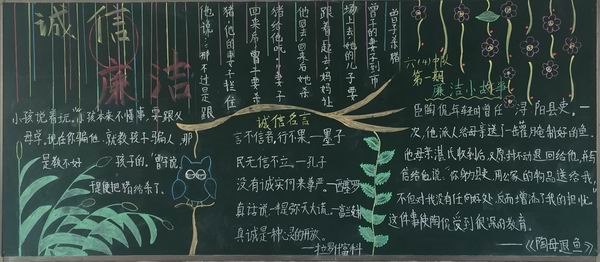 诚信
廉洁
曾子杀猪
曾子的妻子到市
场上去,她的儿子要
跟着一起去,妈妈让
他回去,回来后她杀
猪给他吃。妻子
回来后,曾子要杀
猪,他的妻子拦住
他说:那不过是跟
小孩说着玩。"小孩本来不懂事,要跟父
母学,现在你骗他,就教孩子骗人,那
是教不好孩子的。"曾子说
诚信名言
言不信者,行不果。——墨子
民无信不立。——孔子
没有诚实何来尊严。——西塞罗
真诚是一种心灵的开放。
——拉罗什富科
六(4)中队
第一期
廉洁小故事
臣陶侃年轻时曾任浔阳县吏,一
次,他派人给母亲送了一缶罐腌制好的鱼。
他母亲湛氏收到后,又原封不动退回给他,并写
信给他说:"你当县吏,用公家的物品送给我,
不但对我没有任何好处,反而增添了我的担忧。"
这件事使陶侃受到很深的教育。
——《陶母退鱼》